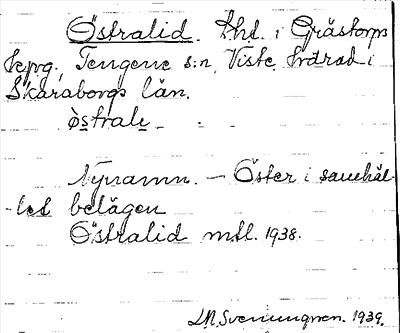 Östralid. Lht. i Grästorps
kpg, Tengene s:n, Viste härad i
Skaraborgs län.
östrali
Nynamn. - Öster i samhäl-
-let belägen
Östralid mtl. 1938.
Svenungsson. 1939.